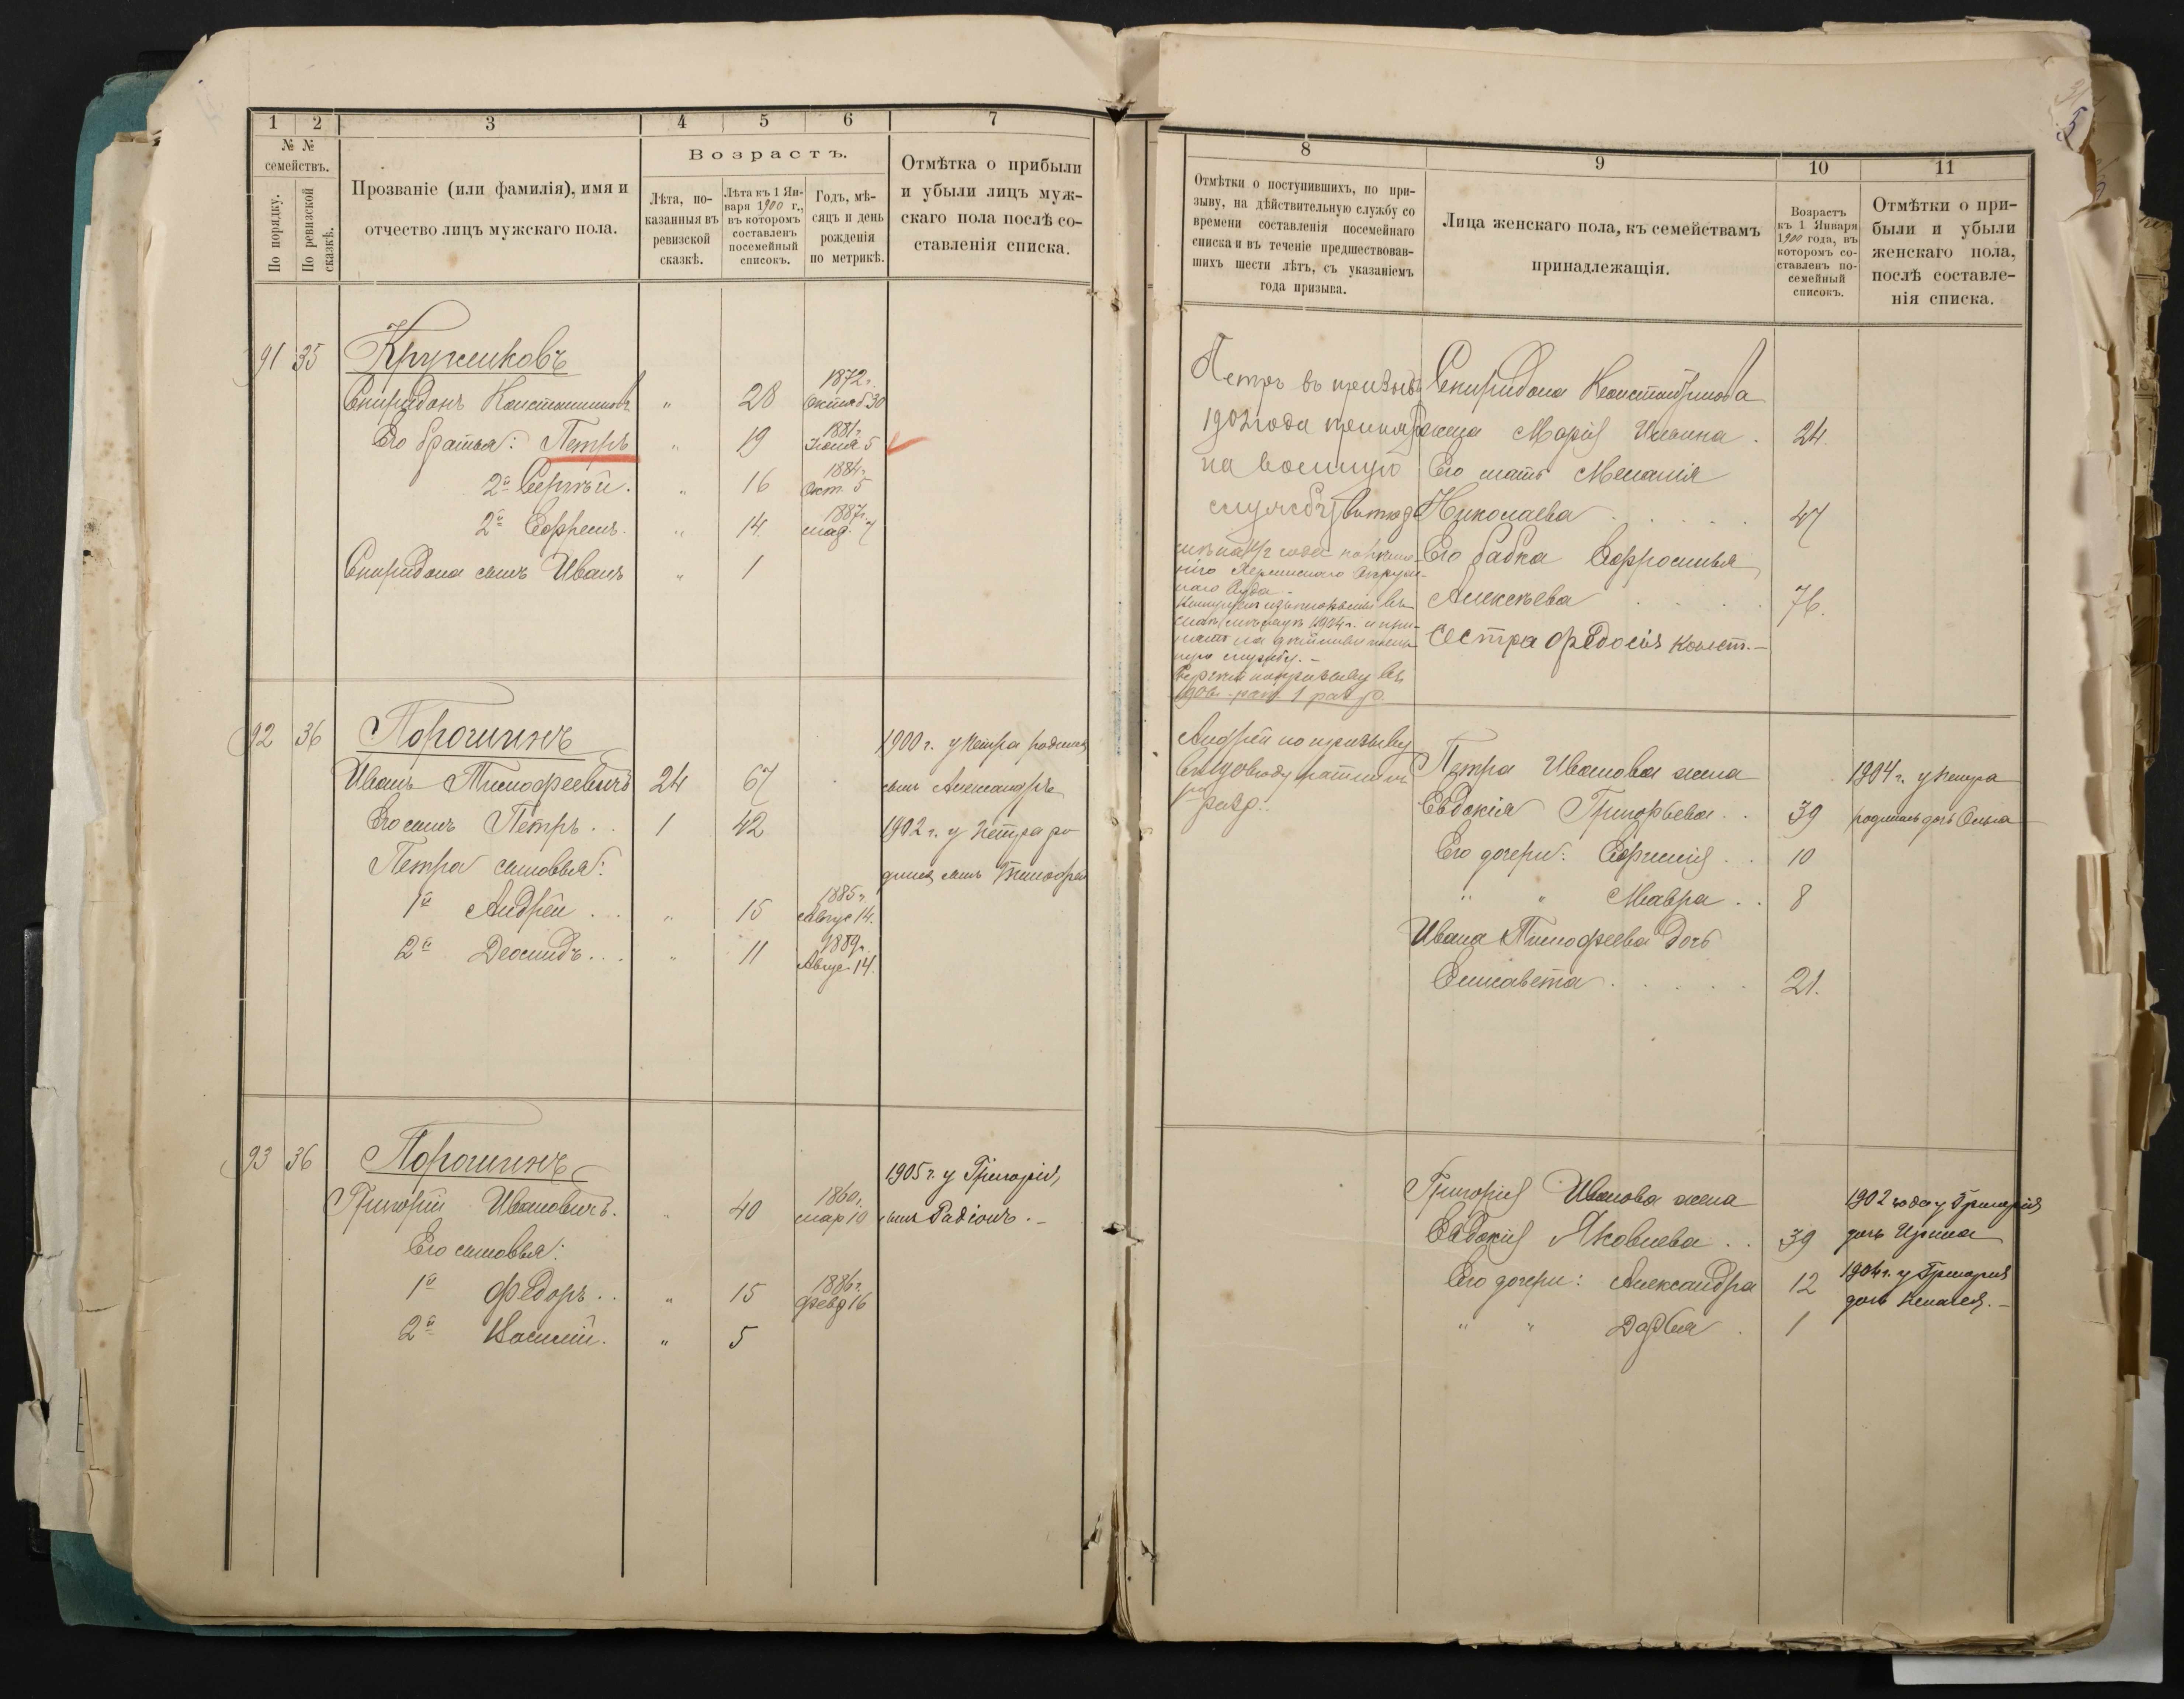 1 2 3 4 5 6 7
№ № семействъ.
По порядку.
По ревизской сказкѣ.
Прозваніе (или фамилія), имя и
отчество лицъ мужскаго пола.
Возрастъ.
Лѣта, по-
казанныя въ
ревизской
сказкѣ.
Лѣта къ 1 Ян-
варя 1900 г.,
въ которомъ
составленъ
посемейный
списокъ.
Годъ, мѣ-
сяцъ и день
рожденія
по метрикѣ.
Отмѣтка о прибыли
и убыли лицъ муж-
скаго пола послѣ со-
ставленія списка.
91 35 Кружиковъ
Спиридонъ Константиновъ " 28 1872 г. Октяб 30
Его братья: Петръ " 19 1881 г. Іюня 5
2й Сергѣй. " 16 1884 г. Окт. 5
2й Ефремъ. " 14. 1887 г. 7
Спиридона сынъ Иванъ " 1
92 36 Порошинъ
Иванъ Тимофеевичъ 24 67
Его сынъ Петръ . . 1 42
Петра сыновья:
1й Андрей . . " 15 1885 г. Авгус 14.
2й Деомидъ . . . " 11 1889 г. Авгус 14.
1900 г. у Петра родился
сынъ Александръ
1902 г. у Петра ро-
дился сынъ Тимофей
93 36 Порошинъ
Григорій Ивановичъ. " 40 1860 г. мар 10
Его сыновья:
1й Федоръ . . " 15 1886 г. февр 16
2й Василій. " 5
1905 г. у Григорія,
сынъ Радіонъ. —
8 9 10 11
Отмѣтки о поступившихъ, по при-
зыву, на дѣйствительную службу со
времени составленія посемейнаго
списка и въ теченіе предшествовав-
шихъ шести лѣтъ, съ указаніемъ
года призыва.
Лица женскаго пола, къ семействамъ
принадлежащія.
Возрастъ
къ 1 Января
1900 года, въ
которомъ со-
ставленъ по-
семейный
списокъ.
Отмѣтки о при-
были и убыли
женскаго пола,
послѣ составле-
нія списка.
Петръ въ призывъ
1902 года принятъ
на военную
службу
на 1 1/2 года
Пермскаго Окруж-
наго Суда
1904 г. и при-
нятъ на
службу. —
Сергѣй по призыву въ
1906 рат. 1 разр
Спиридона Константинова
жена Марія Ильина . 24.
Его мать Меланія
Николаева . . . . . 47
Его бабка Ефросинья
Алексѣева . . . . 76.
Сестра Федосія Конст. —
Андрей по призыву
году ратникъ
разр.
Петра Иванова жена
Евдокія Григорьева . . 39
Его дочери: Ефимія . . 10
" " Мавра . . 8
Ивана Тимофеева дочь
Елисавета . . . . . 21.
1904 г. у Петра
родилась дочь Ольга
Григорія Иванова жена
Евдокія Яковлева . . 39
Его дочери: Александра 12
" " Дарья . 1
1902 года у Григорія
дочь Ирина
1904 г. у Григорія
дочь Пелагея. —